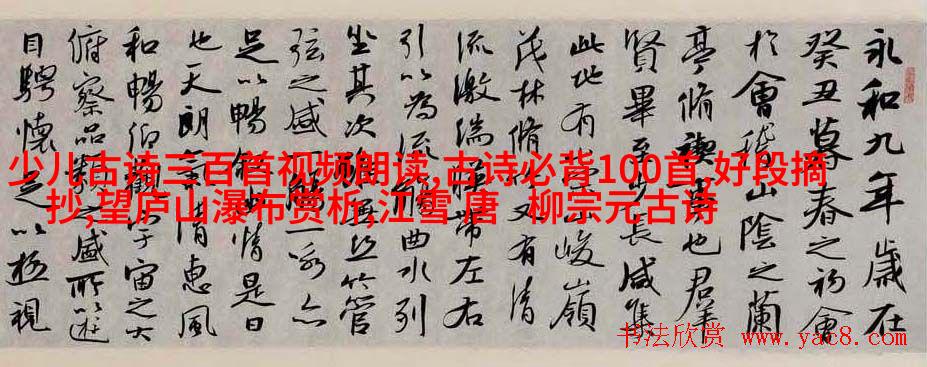 永和九年歲在
癸丑暮春之初會
於會稽山陰之蘭
亭脩禊也群
賢畢至少長咸集
此地有山峻嶺
茂林脩又有清
流激湍帶左右
引以為流曲水列
坐其次無絲竹管
弦之盛一詠亦
足以暢情是日
也天朗清惠風
和暢仰觀宇宙之大
俯察品之盛所以遊
目騁懷足以極視
少儿古诗三百首视频朗读,古诗必背100首,好段摘
抄,望庐山瀑布赏析,江雪 唐 柳宗元古诗
书法欣赏 www.yac8.com